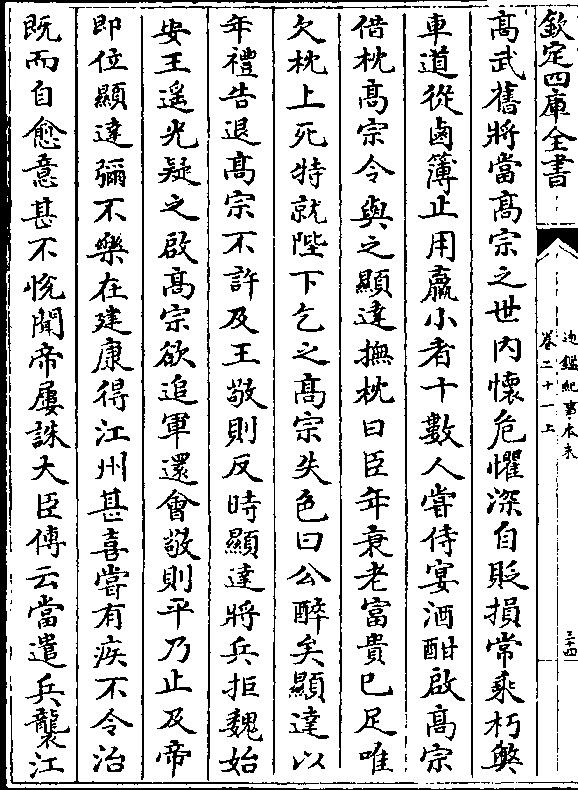 欽定四庫全書
通鑑紀事本末
卷二十一上
三四
高武舊將當高宗之世内懷危懼深自貶損常乘朽弊
車道從鹵簿止用羸小者十數人嘗侍宴酒酣啟高宗
借枕高宗令與之顯達撫枕曰臣年衰老富貴已足唯
欠枕上死特就陛下乞之高宗失色曰公醉矣顯達以
年禮告退高宗不許及王敬則反時顯達將兵拒魏始
安王遥光疑之啟高宗欲追軍還會敬則平乃止及帝
即位顯達彌不樂在建康得江州甚喜嘗有疾不令治
既而自愈意甚不悦聞帝屢誅大臣傳云當遣兵襲江